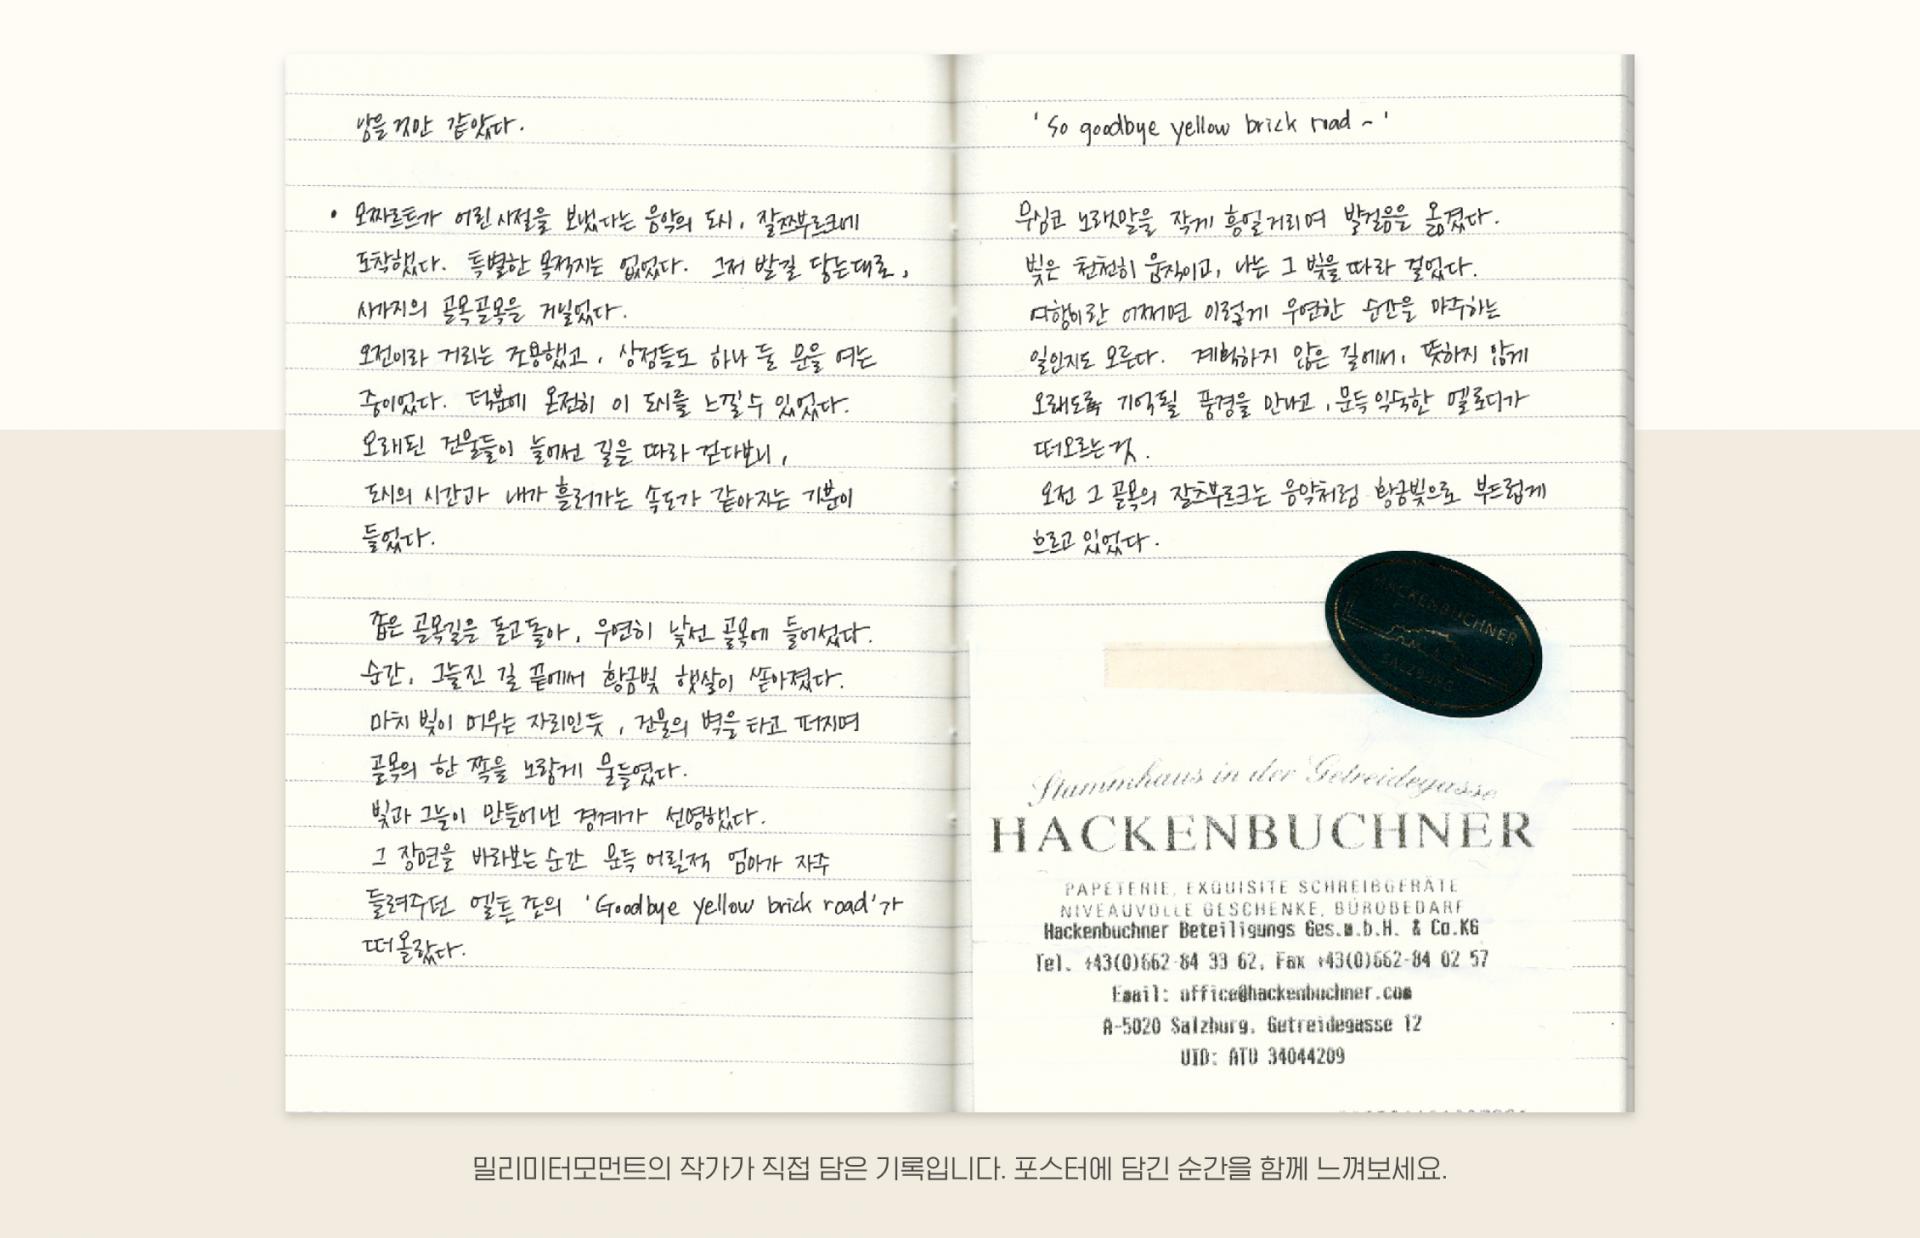 방을 것만 같았다.
• 모짜르트가 어린시절을 보냈다는 음악의 도시, 잘쯔부르크에
도착했다. 특별한 목적지는 없었다. 그저 발길 닿는대로,
시가지의 골목골목을 거닐었다.
오전이라 거리는 조용했고, 상점들도 하나 둘 문을 여는
중이었다. 덕분에 온전히 이 도시를 느낄 수 있었다.
오래된 건물들이 늘어선 길을 따라 걷다보니,
도시의 시간과 내가 흘러가는 속도가 같아지는 기분이
들었다.
좁은 골목길을 돌고돌아, 우연히 낯선 골목에 들어섰다.
순간, 그늘진 길 끝에서 황금빛 햇살이 쏟아졌다.
마치 빛이 머무는 자리인듯, 건물의 벽을 타고 퍼지며
골목의 한 쪽을 노랗게 물들였다.
빛과 그늘이 만들어낸 경계가 선명했다.
그 장면을 바라보는 순간 문득 어릴적 엄마가 자주
들려주던 엘튼존의 'Goodbye yellow brick road'가
떠올랐다.
'So goodbye yellow brick road ~'
무심코 노랫말을 작게 흥얼거리며 발걸음을 옮겼다.
빛은 천천히 움직이고, 나는 그 빛을 따라 걸었다.
여행이란 어쩌면 이렇게 우연한 순간을 마주하는
일인지도 모른다. 계획하지 않은 길에서, 뜻하지 않게
오래도록 기억될 풍경을 만나고, 문득 익숙한 멜로디가
떠오르는 것.
오전 그 골목의 잘츠부르크는 음악처럼 황금빛으로 부드럽게
흐르고 있었다.
HACKENBUCHNER
SALZBURG
Stammhaus in der Getreidegasse
HACKENBUCHNER
PAPETERIE, EXQUISITE SCHREIBGERÄTE
NIVEAUVOLLE GESCHENKE, BÜROBEDARF
Hackenbuchner Beteiligungs Ges.m.b.H. & Co.KG
Tel. +43(0)662-84 33 62, Fax +43(0)662-84 02 57
Email: office@hackenbuchner.com
A-5020 Salzburg, Getreidegasse 12
UID: ATU 34044209
밀리미터모먼트의 작가가 직접 담은 기록입니다. 포스터에 담긴 순간을 함께 느껴보세요.